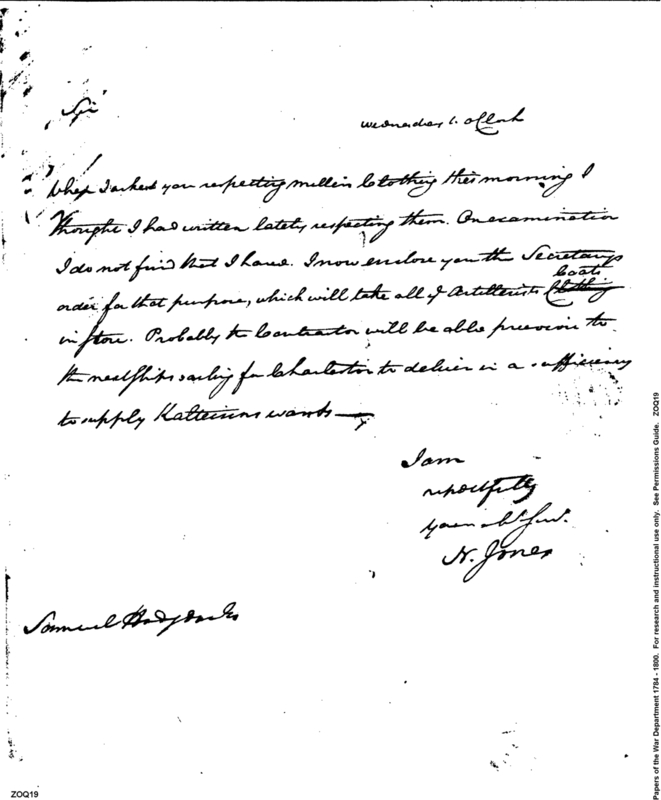 Sir
Wednesday 1. oClock
When I asked you respecting Millers Clothing this morning I
thought I had written lately respecting them. On examination
I do not find that I have. I now enclose you the Secretarys
Coats
order for that purpose, which will take all of Artillerists Clothing
in Store. Probably the Contractor will be able previous to
the next Ships sailing for Charleston to deliver in a sufficiency
to supply Kalteisens wants —
I am
respectfully
your obt. Servt.
N. Jones
Samuel Hodgdon
Papers of the War Department 1784 - 1800. For research and instructional use only. See Permissions Guide. ZOQ19
ZOQ19